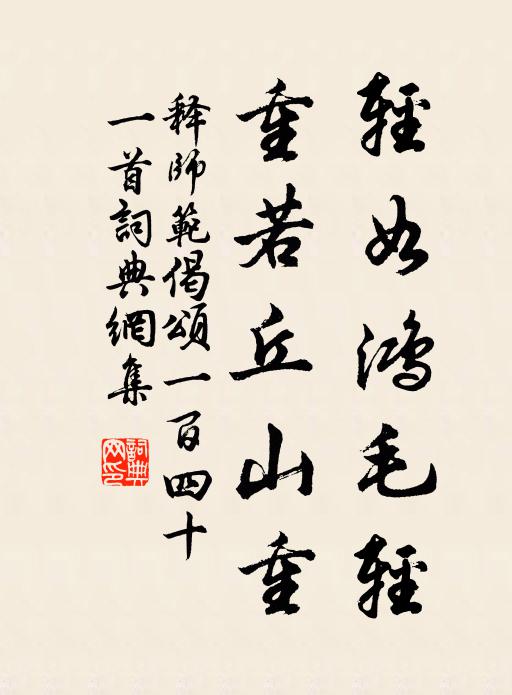 輕如鴻毛輕
重若丘山重
释師範偈頌一百四十
一首詞典網集
詞典
网印